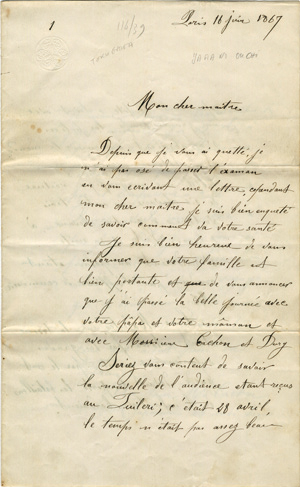 1
Paris 16 juin 1867
Mon cher maître
Depuis que je vous ai quetté, je
n'ai pas osé de passer l'examan
en vous ecrivant une lettre, cependant
mon cher maitre je suis bien enquété
de savoir comment va votre santé
Je suis bien heureux de vous
informer que votre famille est
bien portante et que de vous annoncer
que j'ai passé la belle journée avec
votre papa et votre maman et
avec Monsieur et
Seriez vous content de savoir
la nouvelle de l'audience etant reçus
au Tuileri; c'était 28 avril,
le temps n'était pas assez beau